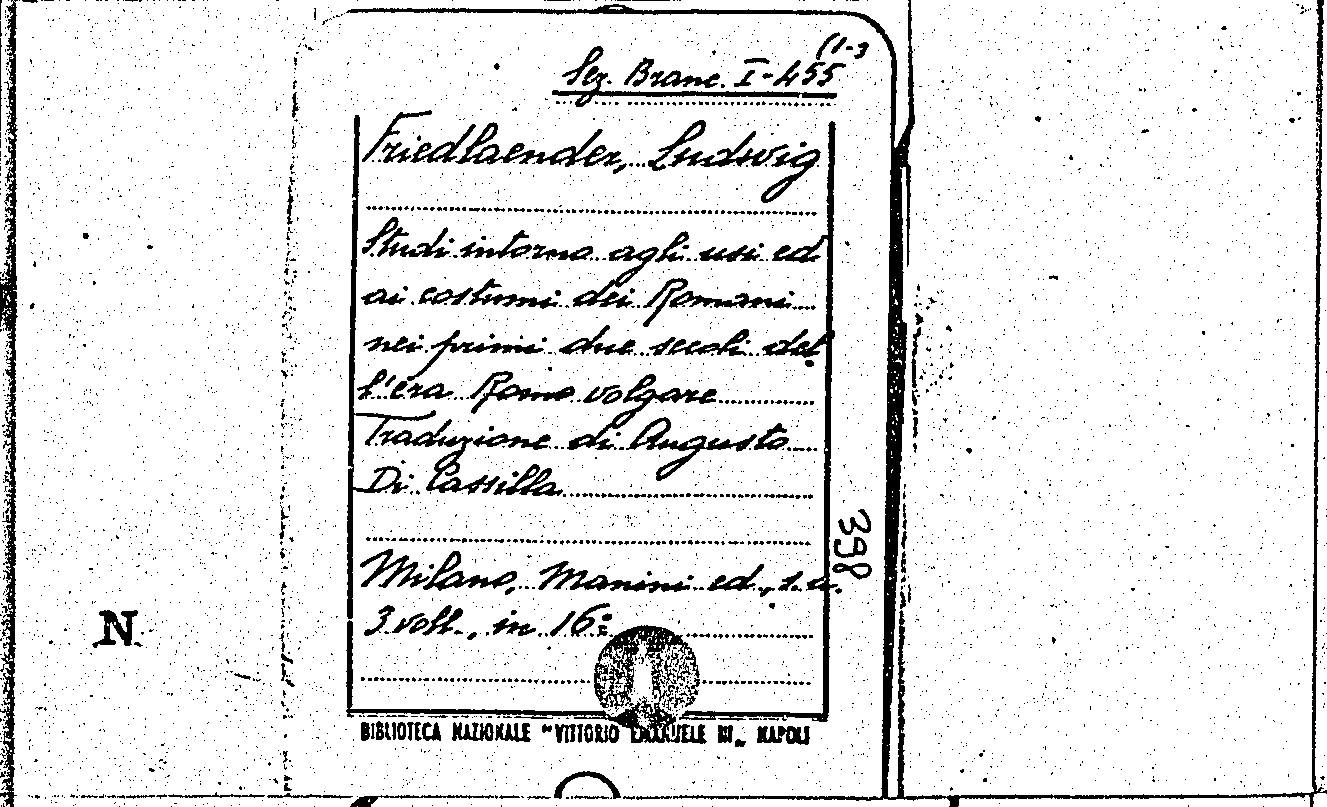 (1-3
Sez. Branc. I-455
Friedlaender, Ludwig
Studi intorno agli usi ed
ai costumi dei Romani
nei primi due secoli del
l'era Romo volgare
Traduzione di Augusto
Di Cassilla
Milano, Manini ed., s.a.
3 voll., in 16º
398
N
BIBLIOTECA NAZIONALE "VITTORIO EMANUELE III" NAPOLI